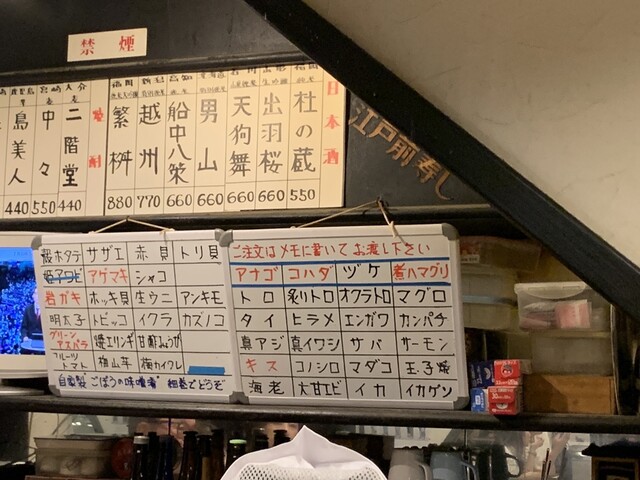 禁煙
日本酒
杜の蔵 550
出羽桜 660
天狗舞 660
男山 660
船中八策 660
越州 770
繁桝 880
焼酎
二階堂 440
中々 550
島美人 440
江戸前寿し
ご注文はメモに書いてお渡し下さい
アナゴ コハダ ヅケ 煮ハマグリ
トロ 炙りトロ オクラトロ マグロ
タイ ヒラメ エンガワ カンパチ
真アジ 真イワシ サバ サーモン
キス コノシロ マダコ 玉子焼
海老 大甘エビ イカ イカゲソ
殻ホタテ サザエ 赤貝 トリ貝
姫アワビ アゲマキ シャコ
岩ガキ ホッキ貝 生ウニ アンキモ
明太子 トビッコ イクラ カズノコ
グリーンアスパラ 焼エリンギ 甘酢みょうが
フルーツトマト 梅山芋 梅カイワレ
自家製 ごぼうの味噌漬 細巻でどうぞ